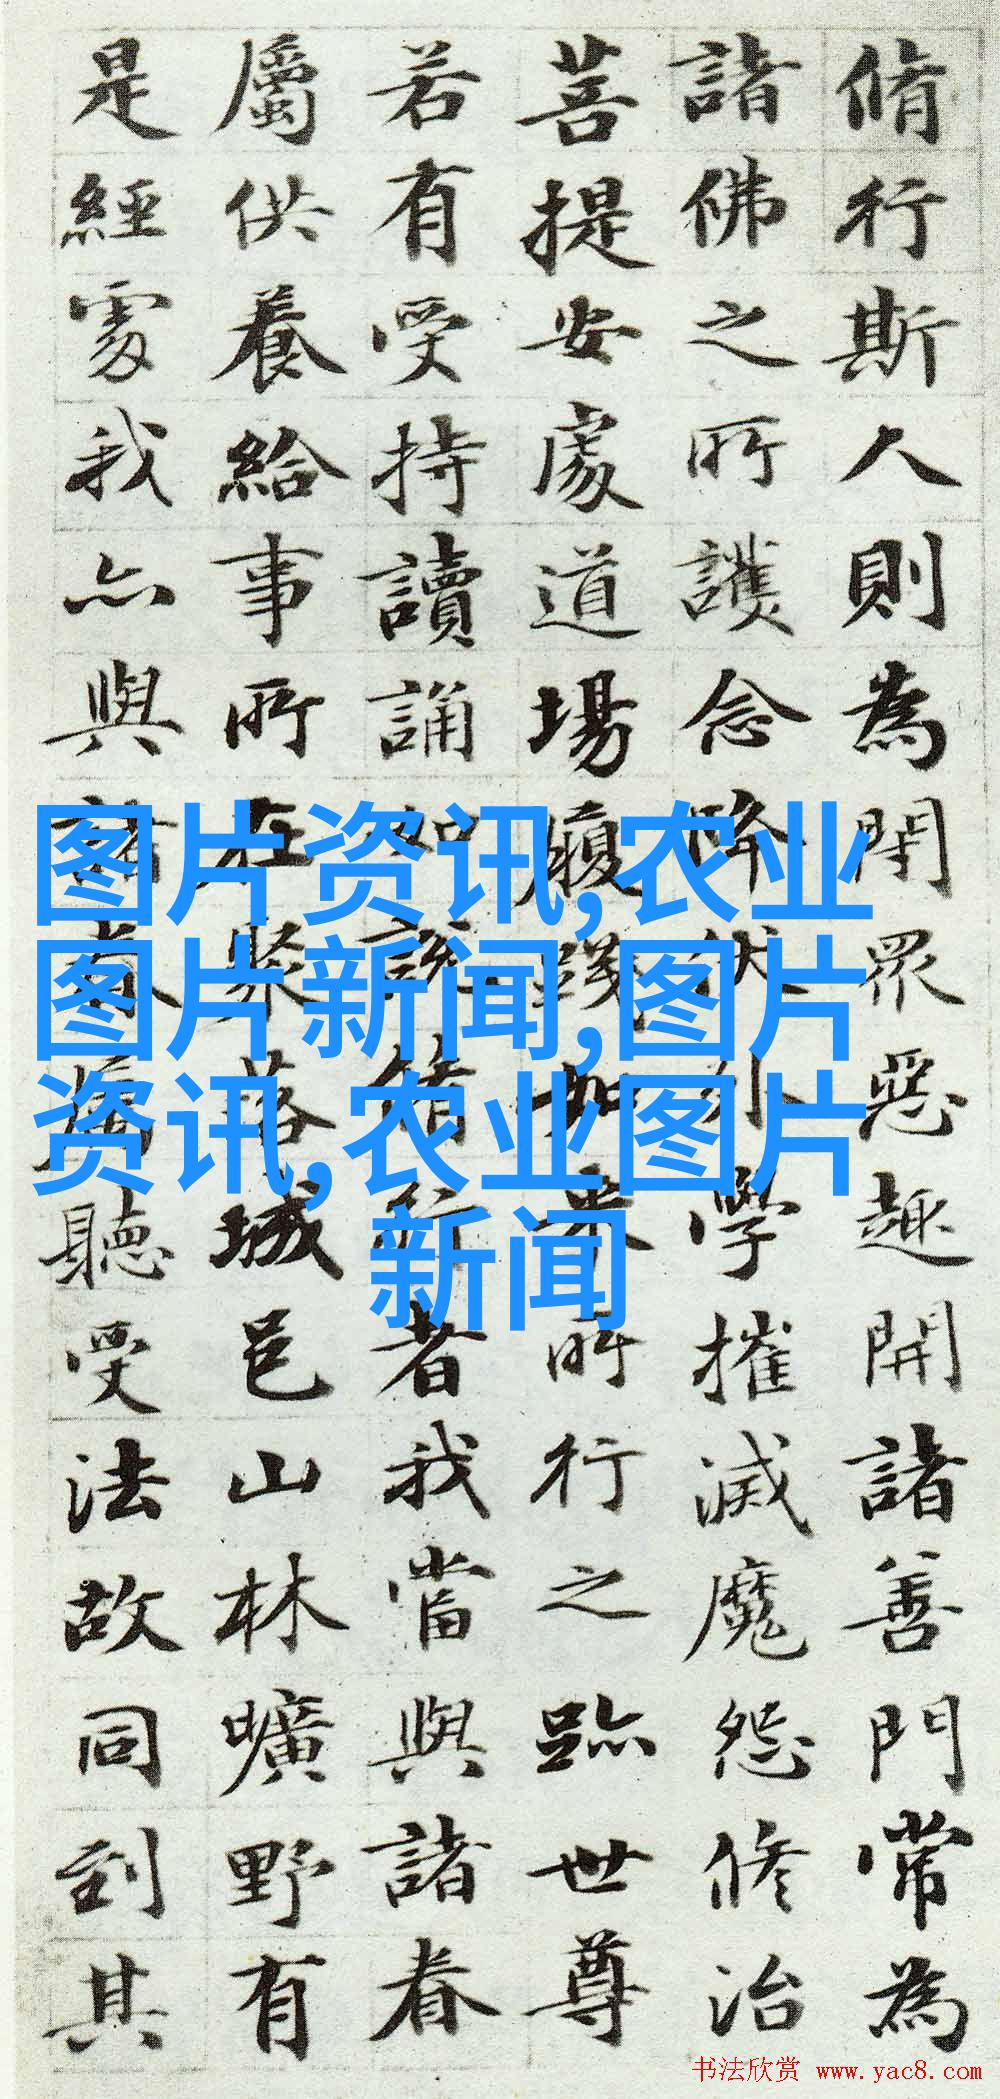 脩行斯人則為閇眾惡趣開諸善門常為
諸佛之所護念降伏外學摧滅魔怨修治
菩提安處道場履踐如來所行之跡世尊
若有受持讀誦如說脩行者我當與諸眷
屬供養給事所在聚落城邑山林曠野有
是經處我亦與諸眷屬聽受法故同到其
图片资讯,农业
图片新闻,图片
资讯,农业图片
新闻
书法欣赏 www.yac8.com